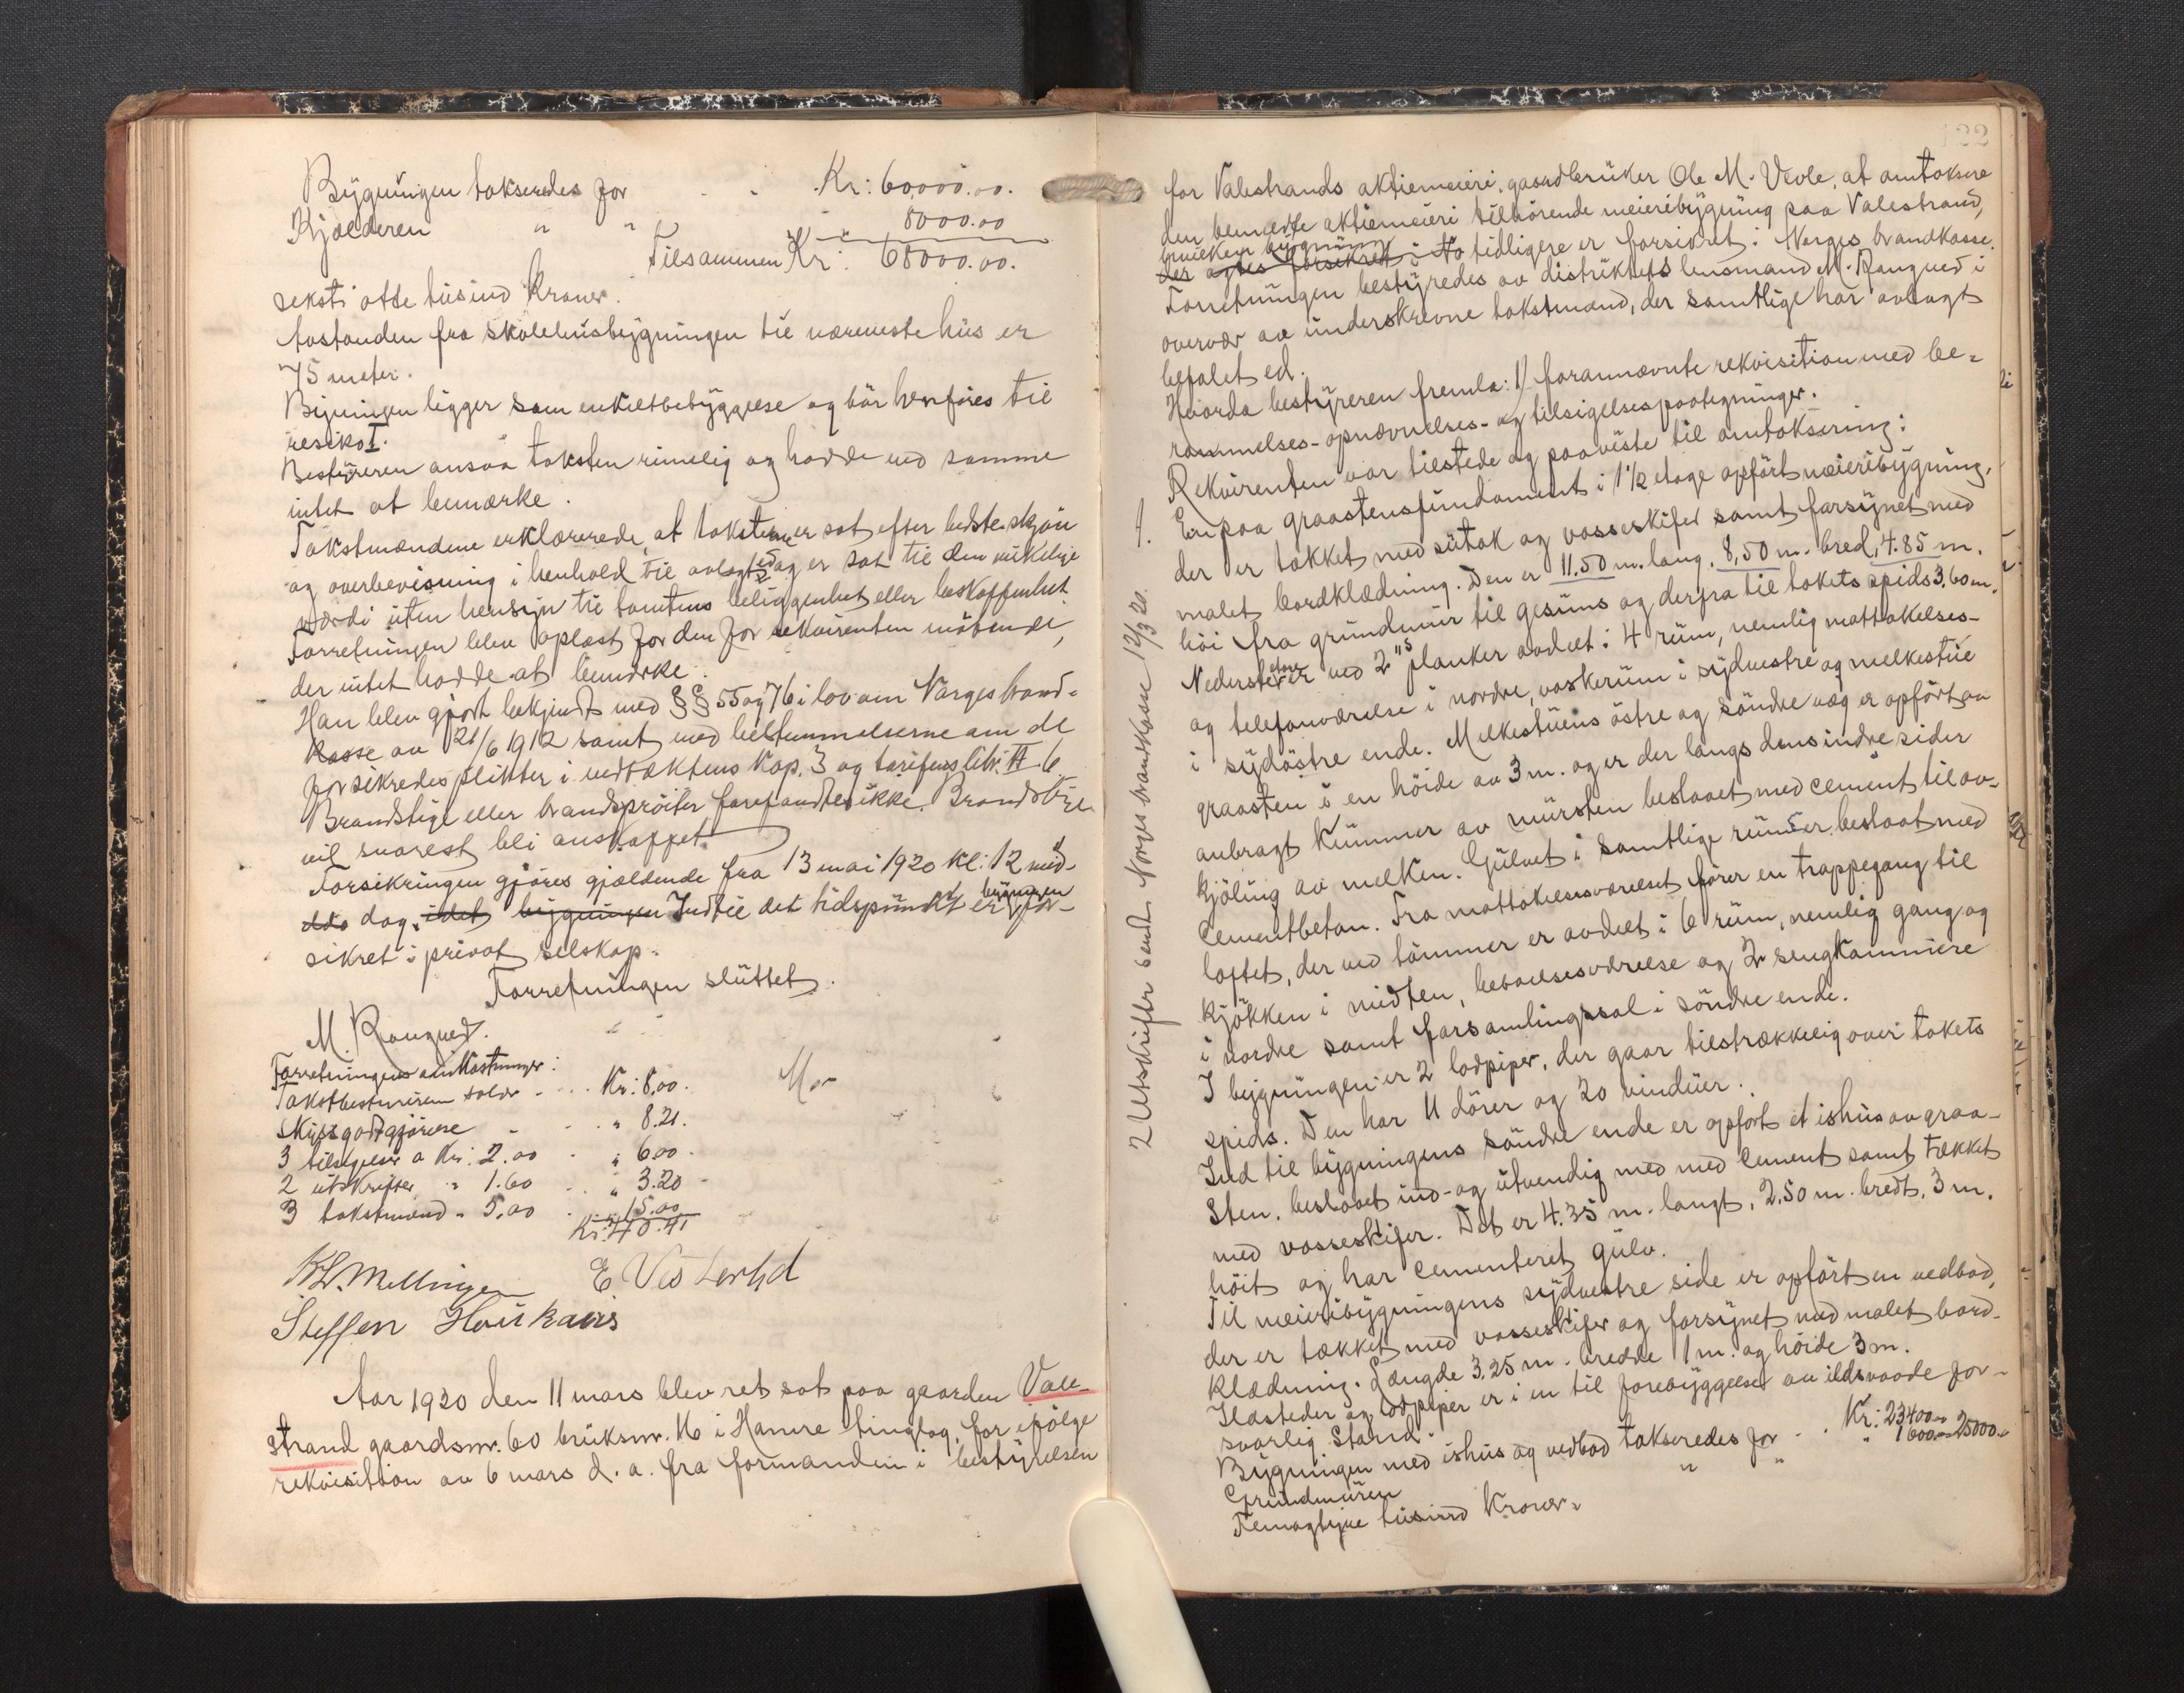 Bygningen takseredes for . . Kr: 60,000.00.
Kjælderen " " 8000.00
Tilsammen Kr: 68000.00.
seksti otte tusind Kroner.
Avstanden fra skolehusbygningen til nærmeste hus er
75 meter.
Bygningen ligger som enkeltbebyggelse og bør henføres til
resiko I.
Bestyreren ansaa taksten rimelig og hadde ved samme
intet at bemærke.
Takstmændene erklærerede, at taksterne er sat efter bedste skjøn
og overbevisning i henhold til avlagt ed og er sat til den virkelige
værdi uten hensyn til tomtens beliggenhet eller beskaffenhet.
Forretningen blev oplæst for den for rekvirenten møtende,
der intet hadde at bemærke.
Han blev gjort bekjendt med §§ 55 og 76 i lov om Norges brand-
kasse av 21/6 1912 samt med bestemmelserne om de
forsikredes plikter i vedtæktens Kap. 3 og tarifens litr. VI 6.
Brandstige eller brandsprøiter forefandtes ikke. Brandstige
vil snarest bli anskaffet.
Forsikringen gjøres gjældende fra 13 mai 1920 kl: 12 mid-
dag. idet bygningen Indtil det tidspunkt er bygningen for-
sikret i privat selskap.
Forretningen sluttet.
M. Rongved.
Forretningens omkostninger:
Takstbestyreren salær . . . Kr: 8,00.
Skyssgodtgjørelse . . . " 8.21.
3 tilsigelser a Kr: 2.00 . " 6.00.
2 utskrifter " 1.60 . . " 3.20
3 takstmænd " 5.00 . " 15.00
Kr: 40.41
E Vesterlid
Steffen Haukaas
Aar 1920 den 11 mars blev ret sat paa gaarden Vale-
strand gaardsnr. 60 bruksnr. 16 i Hamre tinglag, for ifølge
rekvisition av 6 mars d. a. fra formanden i bestyrelsen
122
for Valestrands aktiemeieri, gaardbruker Ole M. Vevle, at omtaksere
den bemeldte aktiemeieri tilhørende meieribygning paa Valestrand,
hvilken bygning tidligere er forsikret i Norges brandkasse.
Forretningen bestyredes av distriktets lensmand M. Rongved i
overvær av underskrevne takstmænd, der samtlige har avlagt
befalet ed.
Hvorda bestyreren fremla: 1) forannævnte rekvisition med be-
rammelses- opnævnelses- og tilsigelsespaategninger.
Rekvirenten var tilstede og paaviste til omtaksering:
1. En paa graastensfundament i 1 1/2 etage opført meieribygning,
der er tækket med sutak og vosseskifer samt forsynet med
malet bordklædning. Den er 11.50 m. lang, 8,50 m. bred, 4.85 m.
høi fra grundmur til gesims og derfra til takets spids 3,60 m.
Nederste etage er ved 2"s planker avdelt i 4 rum, nemlig mottakelses-
og telefonværelse i nordre, vaskerum i sydvestre og melkestue
i sydøstre ende. Melkestuens østre og søndre væg er opført av
graasten i en høide av 3 m. og er der langs dens indre sider
anbragt kummer av mursten beslaaet med cement til av-
kjøling av melken. Gulvet i samtlige rum er beslaat med
cementbeton. Fra mottakelsesværelset fører en trappegang til
loftet, der ved tømmer er avdelt i 6 rum, nemlig gang og
kjøkken i midten, beboelsesværelse og 2 sengkammere
i nordre samt forsamlingssal i søndre ende.
I bygningen er 2 lodpiper, der gaar tilstrækkelig over takets
spids. Den har 11 dører og 20 vinduer.
Ind til bygningens søndre ende er opført et ishus av graa-
sten, beslaaet ind- og utvendig med med cement samt tækket
med vosseskifer. Det er 4.35 m. langt, 2,50 m. bredt, 3 m.
høit og har cementeret gulv.
Til meieribygningens sydvestre side er opført en vedbod,
der er tækket med vosseskifer og forsynet med malet bord-
klædning. Længde 3,25 m. bredde 1 m. og høide 3 m.
Ildsteder og lodpiper er i en til forebyggelse av ildsvaade for-
svarlig stand.
Bygningen med ishus og vedbod takseredes for . . Kr: 23400.00
Grundmuren " " " 1600.00 25000.00
Femogtyve tusind Kroner.
2 Utskrifter sendt Norges brandkasse 12/3 20.